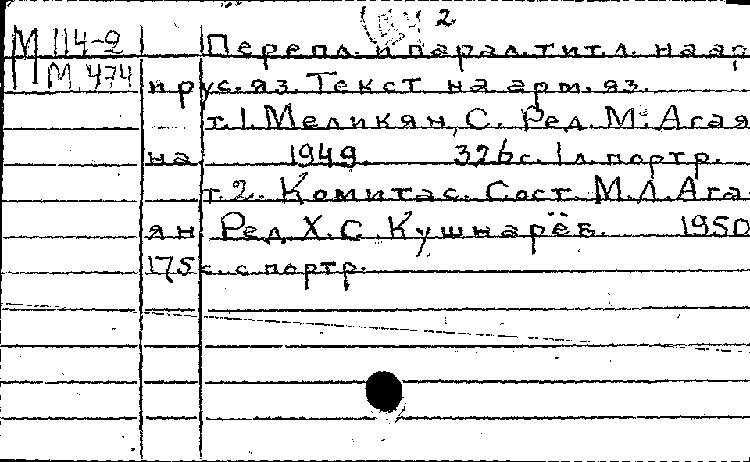 2
М 114-2 Перепл. и парал. тит. л. на ар
М. 474 и рус. яз. Текст на арм. яз.
т. 1. Меликян, С. Ред. М. Агая
на 1949. 326 с. 1 л. портр.
т. 2. Комитас. Сост. М. Л. Ага
ян Ред. Х. С. Кушнарёв. 1950
175 с. с портр.